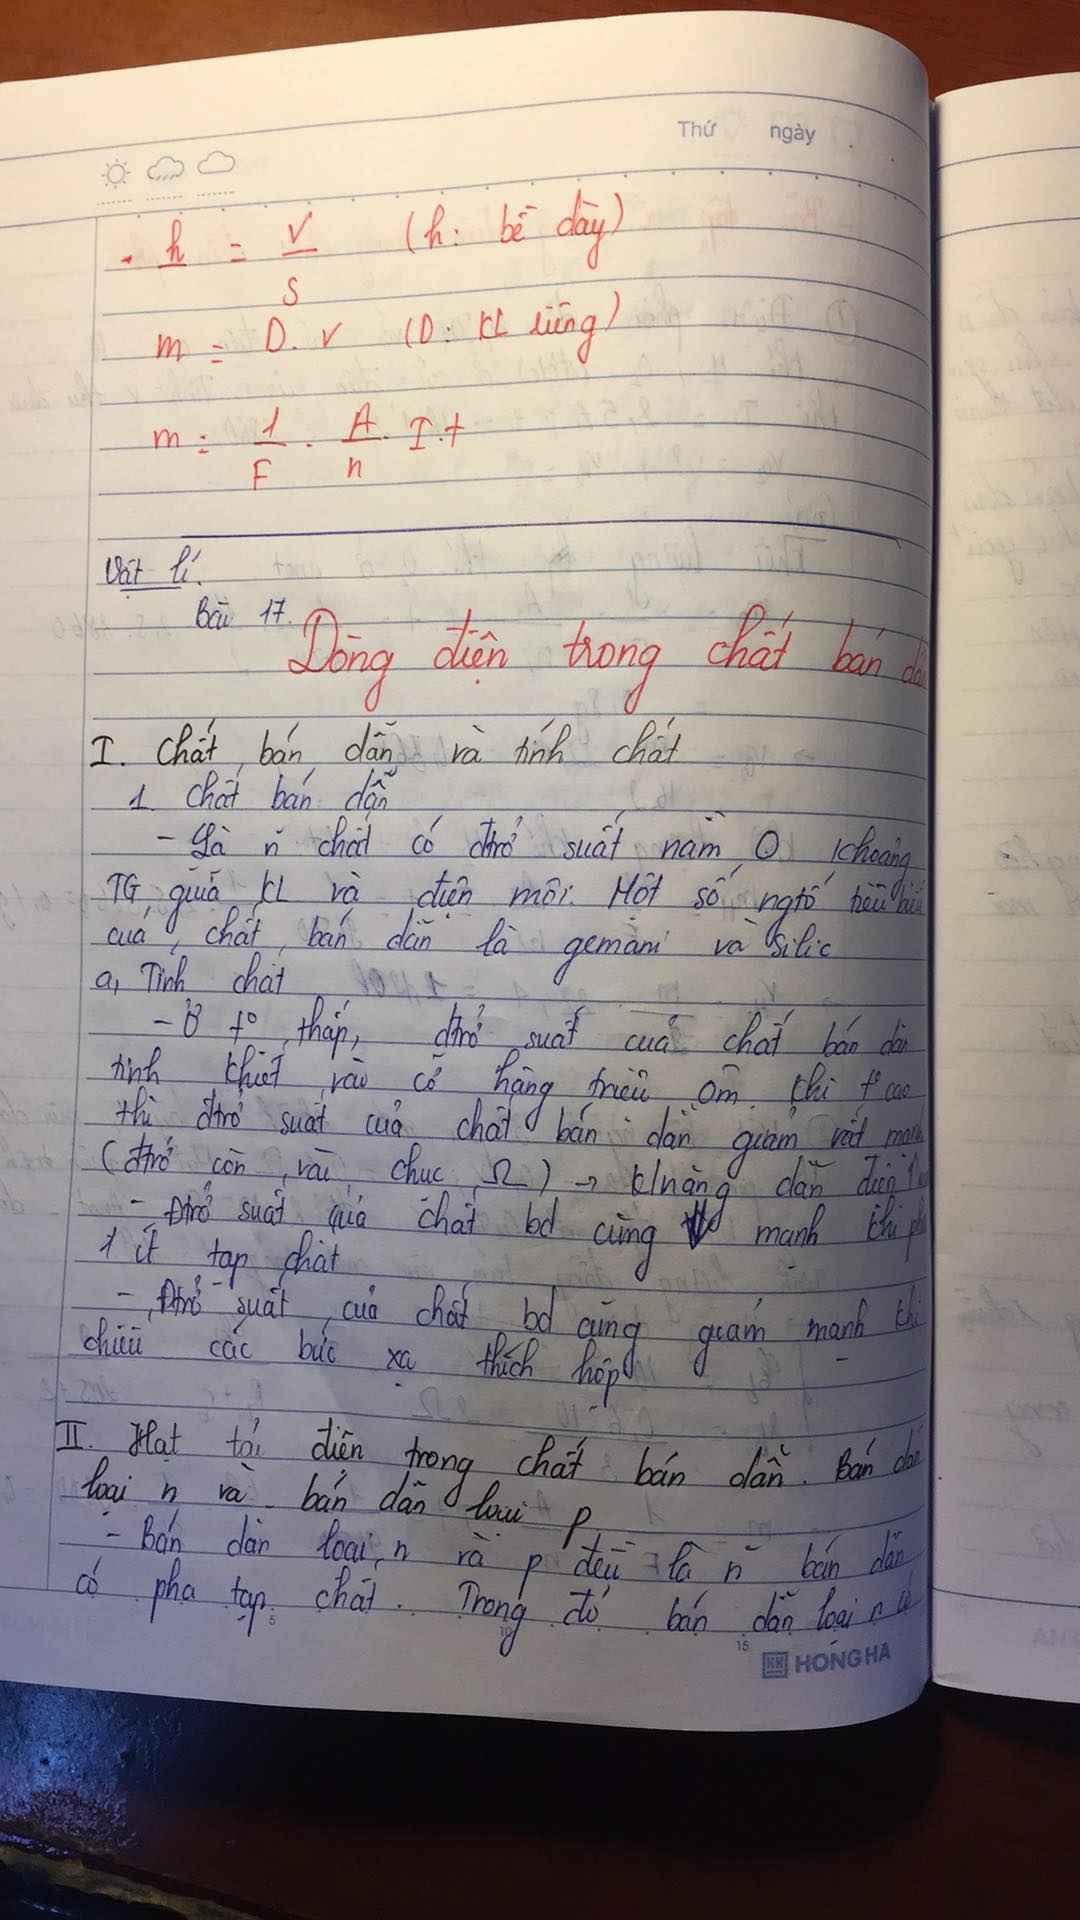 Thứ ngày
- h = V/S (h: bề dày)
m = D.V (D: KL riêng)
m = 1/F . A/n . I.t
Vật lí.
Bài 17.
Dòng điện trong chất bán dẫ
I. Chất bán dẫn và tính chất
1. chất bán dẫn
- Là ~n chất có đtrở suất nằm ở khoảng
TG giữa KL và điện môi. Một số ngtố tiêu biể
của chất bán dẫn là gemani và silic
a, Tính chất
- Ở t° thấp, đtrở suất của chất bán dẫn
tinh khiết vào cỡ hàng triệu ôm. Khi t° cao
thì đtrở suất của chất bán dẫn giảm rất mạnh
(đtrở còn vài chục Ω) → k/năng dẫn điện
- Đtrở suất của chất bd cũng mạnh khi ph
1 ít tạp chất
- Đtrở suất của chất bd cũng giảm mạnh khi
chiếu các bức xạ thích hợp
II. Hạt tải điện trong chất bán dẫn. Bán dẫn
loại n và bán dẫn loại p
- Bán dẫn loại n và p đều là ~n bán dẫn
có pha tạp chất. Trong đó bán dẫn loại n có
5 10 15
HONG HA